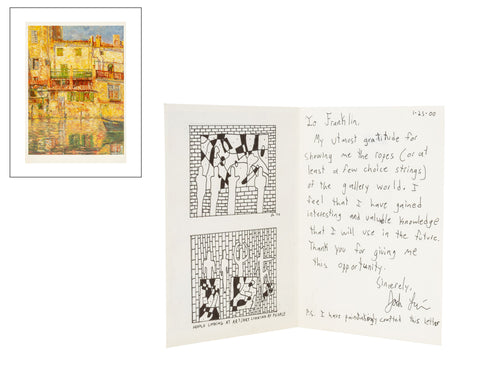 1-25-00
To Franklin
My utmost gratitude for
showing me the ropes (or at
least a few choice strings)
of the gallery world. I
feel that I have gained
interesting and valuable knowledge
that I will use in the future.
Thank you for giving me
this opportunity.
Sincerely,
Josh
P.S. I have painstakingly crafted this letter
PEOPLE LOOKING AT ART/ART LOOKING AT PEOPLE